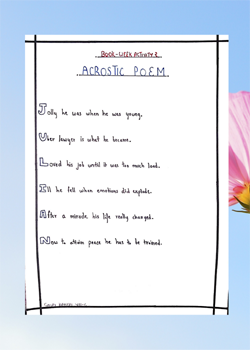 BOOK-WEEK ACTIVITY 2
ACROSTIC POEM
Jolly he was when he was young.
Uber lawyer is what he became.
Loved his job until it was too much land.
Ill he fell when emotions did explode.
After a miracle his life really changed.
Now to attain peace he has to be trained.